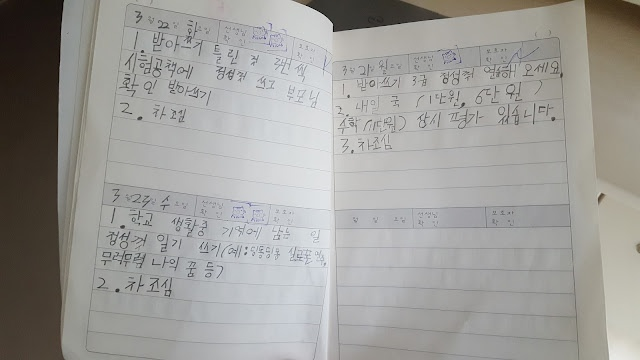 3월 22일 화요일 선생님 확인
1. 받아쓰기 틀린 것 2번씩
시험공책에 정성껏 쓰고 부모님
확인 받아쓰기
2. 차조심
3월 23일 수요일 선생님 확인 보호자 확인
1. 학교 생활중 기억에 남는 일
정성껏 일기 쓰기(예:딩동딩동
무럭무럭 나의 꿈 등)
2. 차조심
3월 21일 월요일 선생님 확인 보호자 확인
1. 받아쓰기 3급 정성껏 연습해 오세요.
2. 내일 국 (1단원, 5단원)
수학(1단원) 상시 평가 있습니다.
3. 차조심
월 일 요일 선생님 확인 보호자 확인